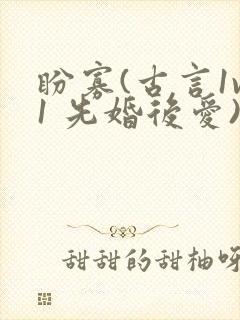 盼寡(古言1v
1 先婚後愛)
甜甜的甜柚呀